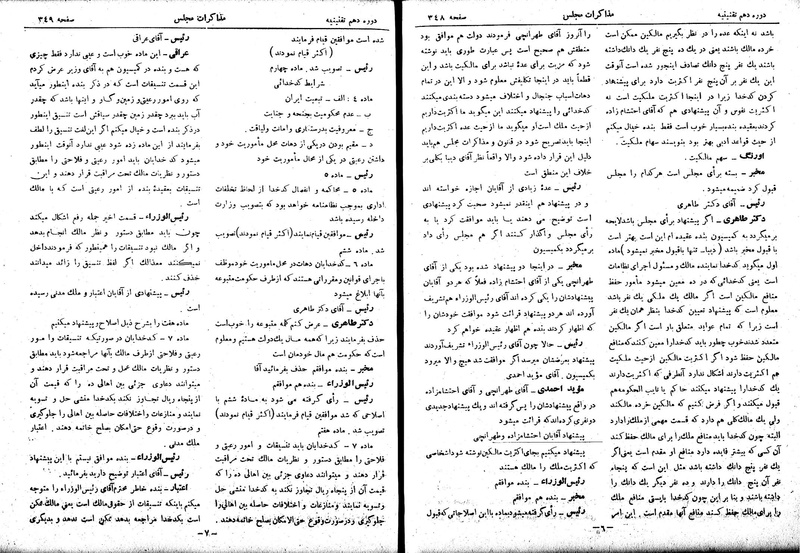 دوره دهم تقنینیه
مذاکرات مجلس
صفحه ۳۴۸
باشد نه اینکه عده را در نظر بگیریم مالکین ممکن است
خرده مالک باشند یعنی در یک ده پنج نفر یک دانگ داشته
باشند یک نفر پنج دانگ تصادف اینجور شده است آنوقت
این یک نفر بر آن پنج نفر اکثریت دارد برای پیشنهاد
کردن کدخدا زیرا در اینجا اکثریت ملکیت است نه
اکثریت نفوس و آن پیشنهادی هم که آقای احتشام زاده
کردند بعقیده بنده بسیار خوب است فقط بنده خیال میکنم
از حیث قواعد ادبی بهتر بود بنویسند سهام ملکیت.
اورنگ - سهم مالکیت.
مخبر - بسته برأی مجلس است هر کدام را مجلس
قبول کرد ضمیمه میشود.
رئیس - آقای دکتر طاهری
دکتر طاهری - اگر پیشنهاد برأی مجلس باشد لایحه
برمیگردد به کمیسیون بنده عقیده ام این است بهتر است
با قبول مخبر باشد (دیبا - تنها باقبول مخبر نمیشود) ماده
اول میگوید کدخدا نماینده مالک و مسئول اجرای نظامات
است یعنی کدخدائی که در ده معین میشود مأمور حفظ
منافع مالکین است اگر مالک یک ملکی یک نفر باشد
معلوم است که پیشنهاد تعیین کدخدا بنظر همان یک نفر
است زیرا که تمام عواید متعلق باو است اگر
متعدد شدند خوب چطور باید کدخدا را معین کنند که منافع
مالکین حفظ شود اگر اکثریت مالکین از حیث ملکیت
هم اکثریت دارند اشکال ندارد آنطرفی که اکثریت دارند
یک کدخدا را پیشنهاد میکنند حاکم یا نایب الحکومه هم
قبول میکنند و اگر فرض کنیم که مالکین خرده مالکند
ولی یک مالک کلی هم دارد که قسمت مهمی از ملک را دارد
البته چون کدخدا باید منافع ملک را برای مالک حفظ کند
آن کسی که بیشتر فایده دارد منافع او مقدم است یعنی اگر
یک نفر پنج دانگ داشته باشد مثل این است که پنجاه
نفر آن پنج دانگ را دارند و ده نفر دیگر یک دانگ
داشته باشند و بنا بر این چون کدخدا بایستی منافع ملک
را برای مالک حفظ کند منافع آنها مقدم است. این
را آنروز آقای طهرانچی فرمودند دولت هم موافق بود
منطقش هم صحیح است پس عبارت طوری باید نوشته
شود که مزیت برای عدهٔ نباشد برای مالکیت باشد و این
قطعاً باید در اینجا تکلیفش معلوم شود و الا این در تمام
دهات اسباب جنجال و اختلاف میشود دسته بندی میکنند
کدخدائی را پیشنهاد میکنند این میگوید ما اکثریت داریم
از حیث ملک است او میگوید ما از حیث عده اکثریت داریم
اینجا باید تصریح شود در قانون و مذاکرات مجلس هم باید
دلیل این قرار داده شود والا واقعاً نظر آقای دیبا بکلی بر
خلاف این منطق است
رئیس - عدهٔ زیادی از آقایان اجازه خواسته اند
و در پیشنهاد هم اینقدر نمیشود صحبت کرد پیشنهادی
است توضیح می دهند یا باید موافقت کرد یا به
رأی مجلس واگذار کنند اگر هم مجلس رأی داد
برمیگردد بکمیسیون
مخبر - در اینجا دو پیشنهاد شده بود یکی از آقای
طهرانچی یکی از آقای احتشام زاده فعلاً که هر دو آقایان
پیشنهادشان را یکی کرده اند آقای رئیس الوزراء هم تشریف
آورده اند هر دو پیشنهاد قرائت شود موافقت خودشان را
که اظهار کردند بنده هم اظهار عقیده خواهم کرد
رئیس - حالا چون آقای رئیس الوزراء تشریف آوردند
پیشنهاد بعرضشان میرسد اگر موافقت شد هیچ والا میرود
بکمیسیون. آقای مؤید احمدی
مؤید احمدی - آقای طهرانچی و آقای احتشام زاده
در واقع پیشنهادشان را پس گرفته اند و یک پیشنهاد جدیدی
دو نفری کرده اند که قرائت میشود
پیشنهاد آقایان احتشامزاده و طهرانچی
پیشنهاد میکنیم بجای اکثریت مالکین نوشته شود اشخاصی
که اکثریت ملک را مالک هستند
رئیس الوزراء - بنده موافقم
مخبر - بنده هم موافقم
رئیس - رأی گرفته میشود بماده با این اصلاحاتی که قبول
-۶-
مذاکرات مجلس
دوره دهم تقنینیه
صفحه ۳۴۹
شده است موافقین قیام فرمایند
(اکثر قیام نمودند)
رئیس - تصویب شد. ماده چهارم
شرایط کدخدائی
ماده ۴ : الف - تبعیت ایران
ب - عدم محکومیت بجنحه و جنایت
ج - معروفیت بدرستکاری و امانت و لیاقت.
د - مقیم بودن در یکی از دهات محل مأموریت خود و
داشتن رعیتی در یکی از محال مأموریت خود
رئیس - ماده ۵
ماده ۵ - محاکمه و انفصال کدخدا از لحاظ تخلفات
اداری بموجب نظامنامه خواهد بود که بتصویب وزارت
داخله رسیده باشد
رئیس - موافقین قیام نمایند (اکثر قیام نمودند) تصویب
شد. ماده ششم
ماده ۶ - کدخدایان دهات در محل مأموریت خود موظف
باجرای قوانین و مقرراتی هستند که از طرف حکومت متبوعه
بآنها ابلاغ میشود
رئیس - آقای دکتر طاهری
دکتر طاهری - عرض کنم کلمه متبوعه را خوب است
حذف بفرمایند زیرا که همه مال یک دولت هستیم و معلوم
است که حکومت هم مال خودمان است
مخبر - بنده موافقم حذف بفرمائید آقا
رئیس الوزراء - بنده هم موافقم
رئیس - رأی گرفته می شود به مادهٔ ششم با
اصلاحی که شد موافقین قیام فرمایند (اکثر قیام نمودند)
تصویب شد. ماده هفتم
ماده ۷ - کدخدایان باید تنسیقات و امور رعیتی و
فلاحتی را مطابق دستور و نظریات مالک تحت مراقبت
قرار دهند و میتوانند دعاوی جزئی بین اهالی ده را که
قیمت آن از پنجاه ریال تجاوز نکند به کدخدا منشی حل
و تسویه نمایند و منازعات و اختلافات حاصله بین اهالی را
جلوگیری و در صورت وقوع حتی الامکان بصلح خاتمه دهند.
رئیس - آقای عراقی
عراقی - این ماده خوب است و عیبی ندارد فقط چیزی
که هست و بنده در کمیسیون هم به آقای وزیر عرض کردم
این قسمت تنسیقات است که در ذکر بنده اینطور میآید
که روی امور رعیتی و زمین و گاو و اینها باشد که چقدر
آب باید ببرد چقدر زمین داشته باشد این تنسیق اینطور
در ذکر بنده است و خیال میکنم اگر این لغت تنسیق را لطف
بفرمایند از این ماده زده شود عیبی ندارد آنوقت اینطور
میشود کدخدایان باید امور رعیتی و فلاحتی را مطابق
دستور و نظریات مالک تحت مراقبت قرار دهند و این
تنسیقات بعقیدهٔ بنده از امور رعیتی است که با مالک
است
رئیس الوزراء - قسمت اخیر جمله رفع اشکال میکند
چون باید مطابق دستور و نظر مالک انجام بدهد
و اگر مالک نبود تنسیقات را همینطور که فرمودند داخل
نمیکنند معذالک اگر لفظ تنسیق را زائد میدانند
حذف کنند.
رئیس - پیشنهادی از آقایان اعتبار و ملک مدنی رسیده
است.
ماده هفت را بشرح ذیل اصلاح پیشنهاد میکنیم
ماده ۷ - کدخدایان در صورتیکه تنسیقات و امور
رعیتی و فلاحتی از طرف مالک بآنها مراجعه شود باید مطابق
دستور و نظریات مالک محل تحت مراقبت قرار دهند و
میتوانند دعاوی جزئی بین اهالی ده را که قیمت آن
از پنجاه ریال تجاوز نکند بکدخدا منشی حل و تسویه
نمایند و منازعات و اختلافات حاصله بین اهالی را جلوگیری
و در صورت وقوع حتی الامکان بصلح خاتمه دهند. اعتبار -
ملک مدنی.
رئیس الوزراء - بنده موافق نیستم با این پیشنهاد
رئیس - آقای اعتبار توضیح دارید بفرمائید.
اعتبار - بنده خاطر محترم آقای رئیس الوزراء را متوجه
میکنم باینکه تنسیقات از حقوق مالک است یعنی مالک ممکن
است بکدخدا مراجعه بدهد ممکن است ندهد و بدیگری
-۷-